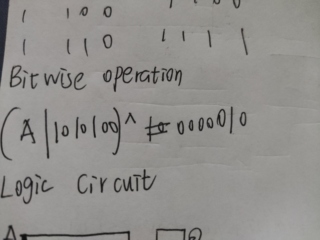 1 100
1 110 1111
Bitwise operation
(A|10100)^ 000010
Logic Circuit
A